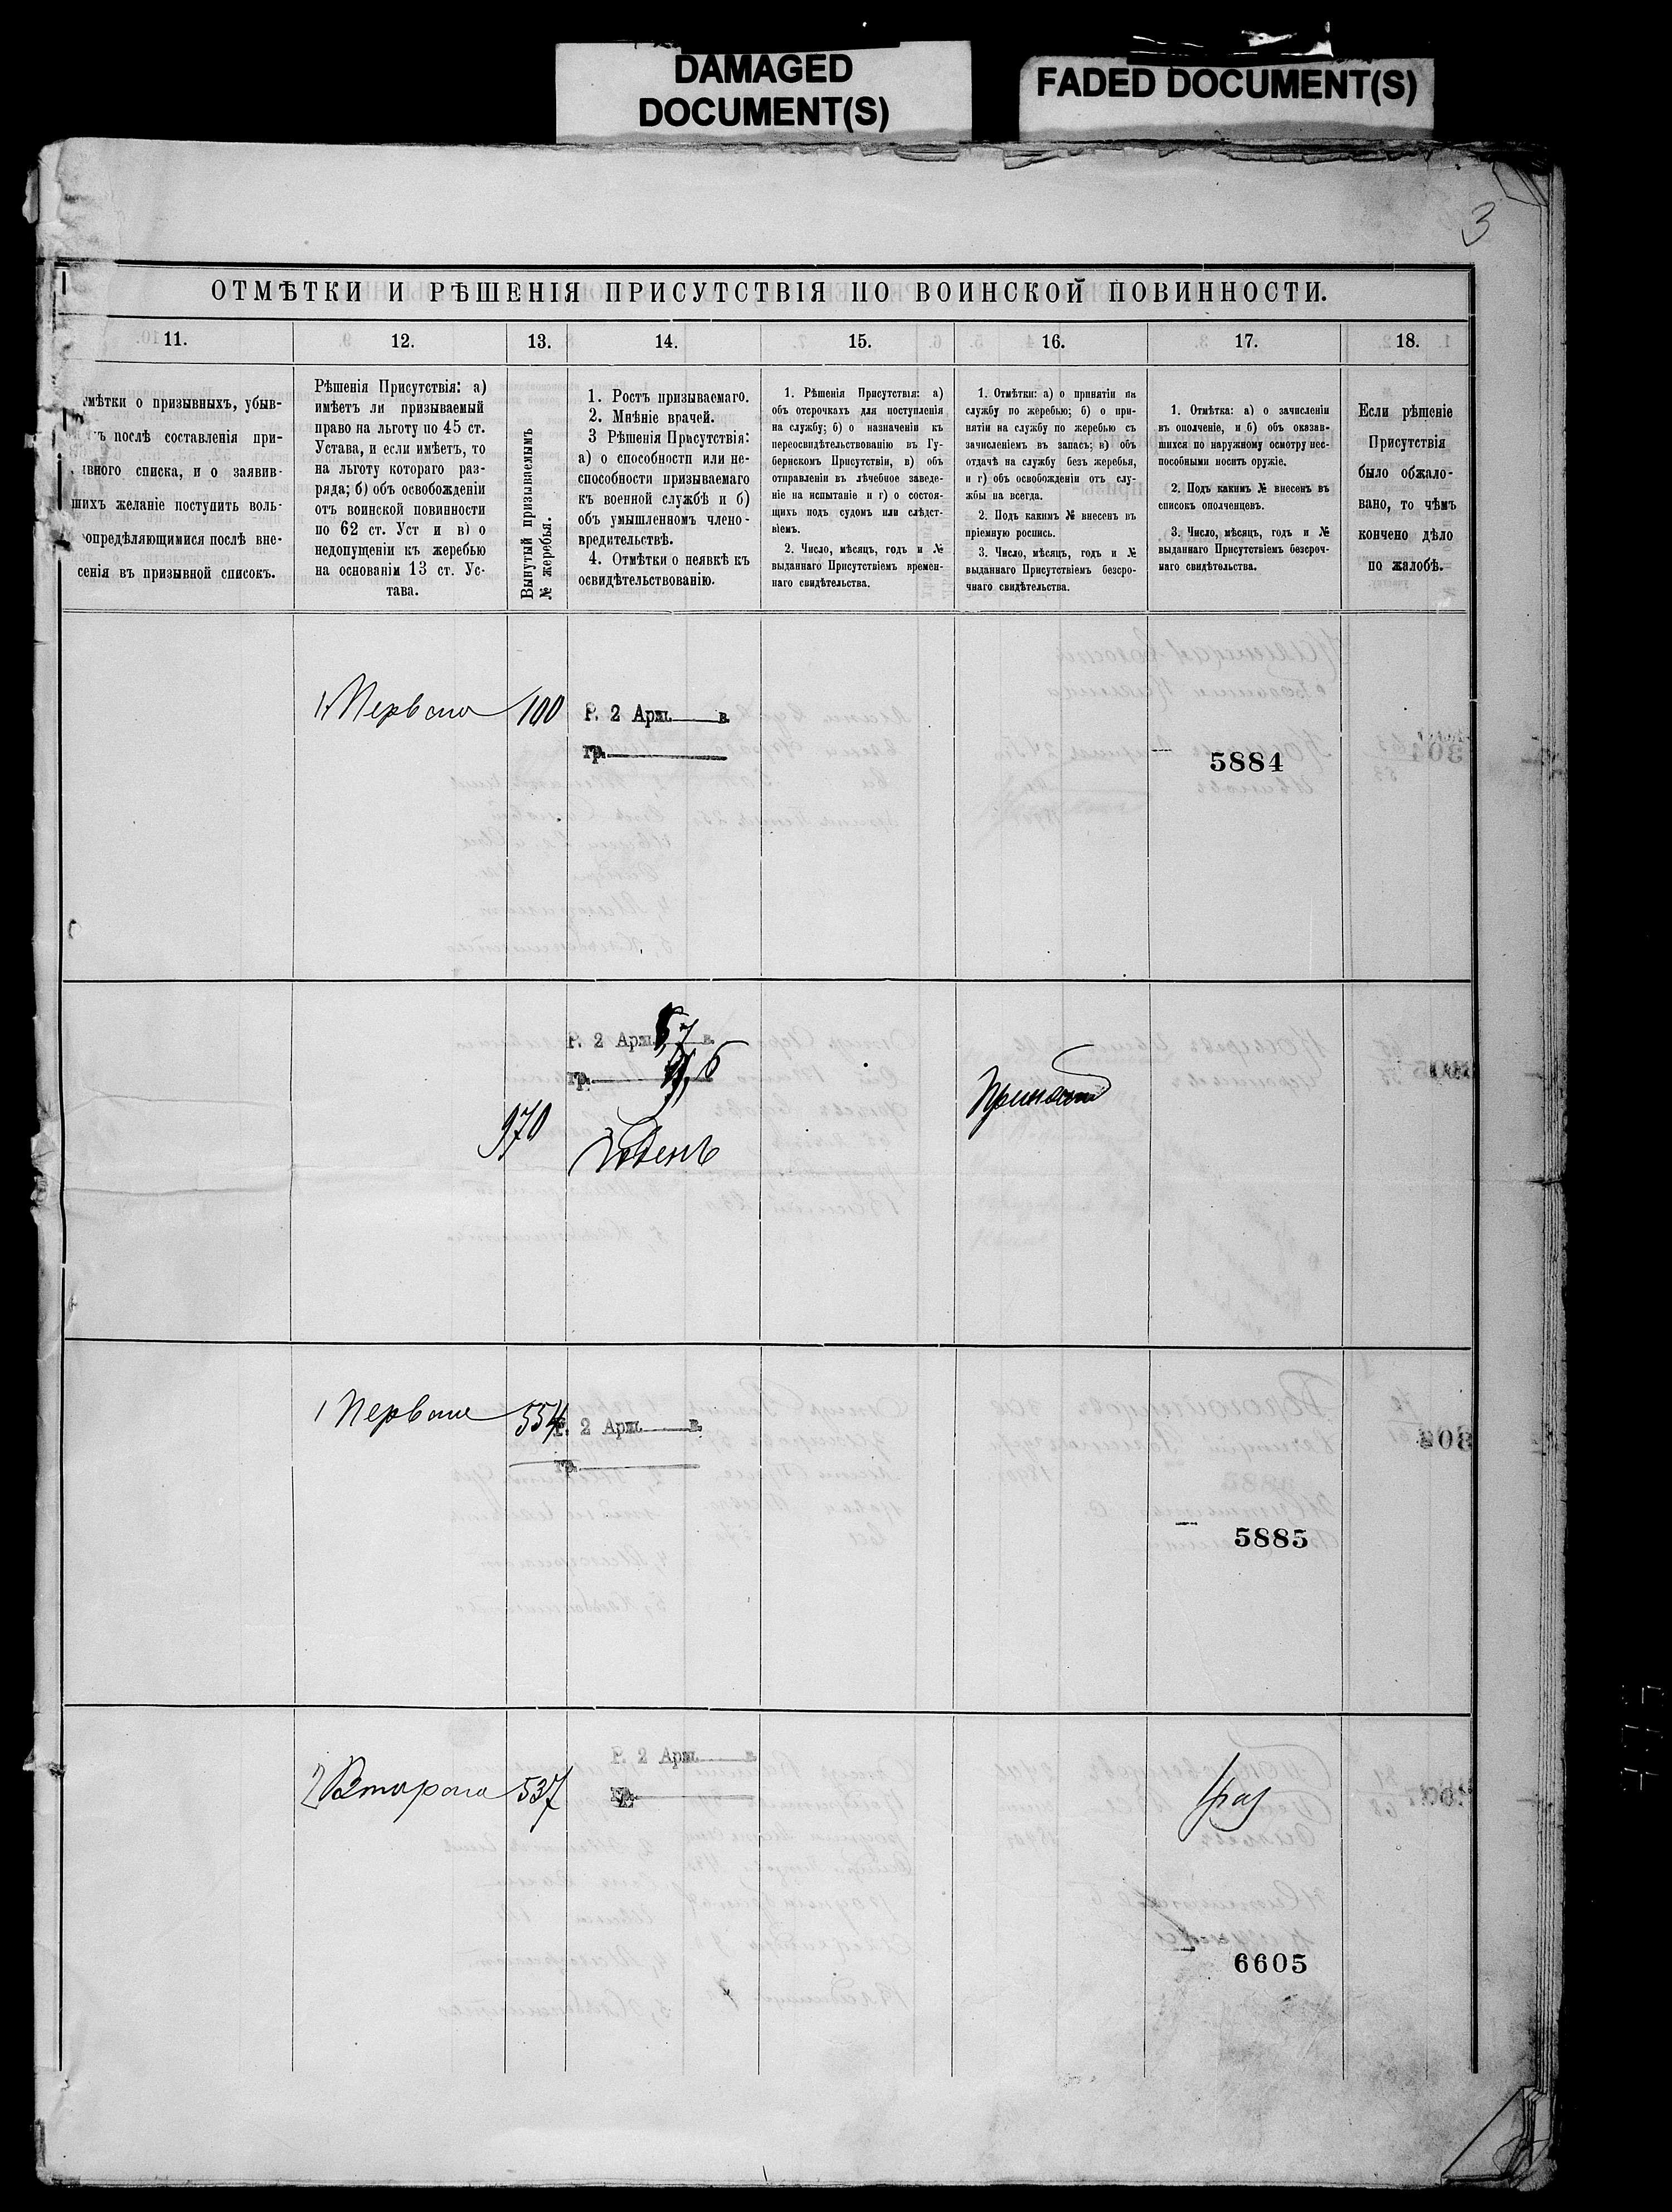 DAMAGED
DOCUMENT(S)
FADED DOCUMENT(S)
3
ОТМѢТКИ И РѢШЕНІЯ ПРИСУТСТВІЯ ПО ВОИНСКОЙ ПОВИННОСТИ.
11.
12.
13.
14.
15.
16.
17.
18.
мѣтки о призывныхъ, убыв-
ъ послѣ составленія при-
ывного списка, и о заявив-
шихъ желаніе поступить воль-
опредѣляющимися послѣ вне-
сенія въ призывной списокъ.
Рѣшенія Присутствія: а)
имѣетъ ли призываемый
право на льготу по 45 ст.
Устава, и если имѣетъ, то
на льготу котораго раз-
ряда; б) объ освобожденіи
отъ воинской повинности
по 62 ст. Уст и в) о
недопущеніи къ жеребью
на основаніи 13 ст. Ус-
тава.
Вынутый призываемымъ
№ жеребья.
1. Ростъ призываемаго.
2. Мнѣніе врачей.
3 Рѣшенія Присутствія:
а) о способности или не-
способности призываемаго
къ военной службѣ и б)
объ умышленномъ члено-
вредительствѣ.
4. Отмѣтки о неявкѣ къ
освидѣтельствованію.
1. Рѣшенія Присутствія: а)
объ отсрочкахъ для поступленія
на службу; б) о назначеніи къ
переосвидѣтельствованію въ Гу-
бернскомъ Присутствіи, в) объ
отправленіи въ лѣчебное заведе-
ніе на испытаніе и г) о состоя-
щихъ подъ судомъ или слѣдст-
віемъ.
2. Число, мѣсяцъ, годъ и №
выданнаго Присутствіемъ времен-
наго свидѣтельства.
1. Отмѣтки: а) о принятіи на
службу по жеребью; б) о при-
нятіи на службу по жеребью съ
зачисленіемъ въ запасъ; в) объ
отдачѣ на службу безъ жеребья,
и г) объ освобожденіи отъ слу-
жбы на всегда.
2. Подъ какимъ № внесенъ въ
пріемную роспись.
3. Число, мѣсяцъ, годъ и №
выданнаго Присутствіемъ безсро-
чнаго свидѣтельства.
1. Отмѣтка: а) о зачисленіи
въ ополченіе, и б) объ оказав-
шихся по наружному осмотру нес-
пособными носить оружіе.
2. Подъ какимъ № внесенъ въ
списокъ ополченцевъ.
3. Число, мѣсяцъ, годъ и №
выданнаго Присутствіемъ безсроч-
наго свидѣтельства.
Если рѣшеніе
Присутствія
было обжало-
вано, то чѣмъ
кончено дѣло
по жалобѣ.
1 Перваго 100 Р. 2 Арш. в.
гр.
5884
Р. 2 Арш. в.
гр.
970
Годенъ
Принятъ
1 Перваго 554 Р. 2 Арш. в.
гр.
5885
2 Втораго 537 Р. 2 Арш. в.
гр.
6605